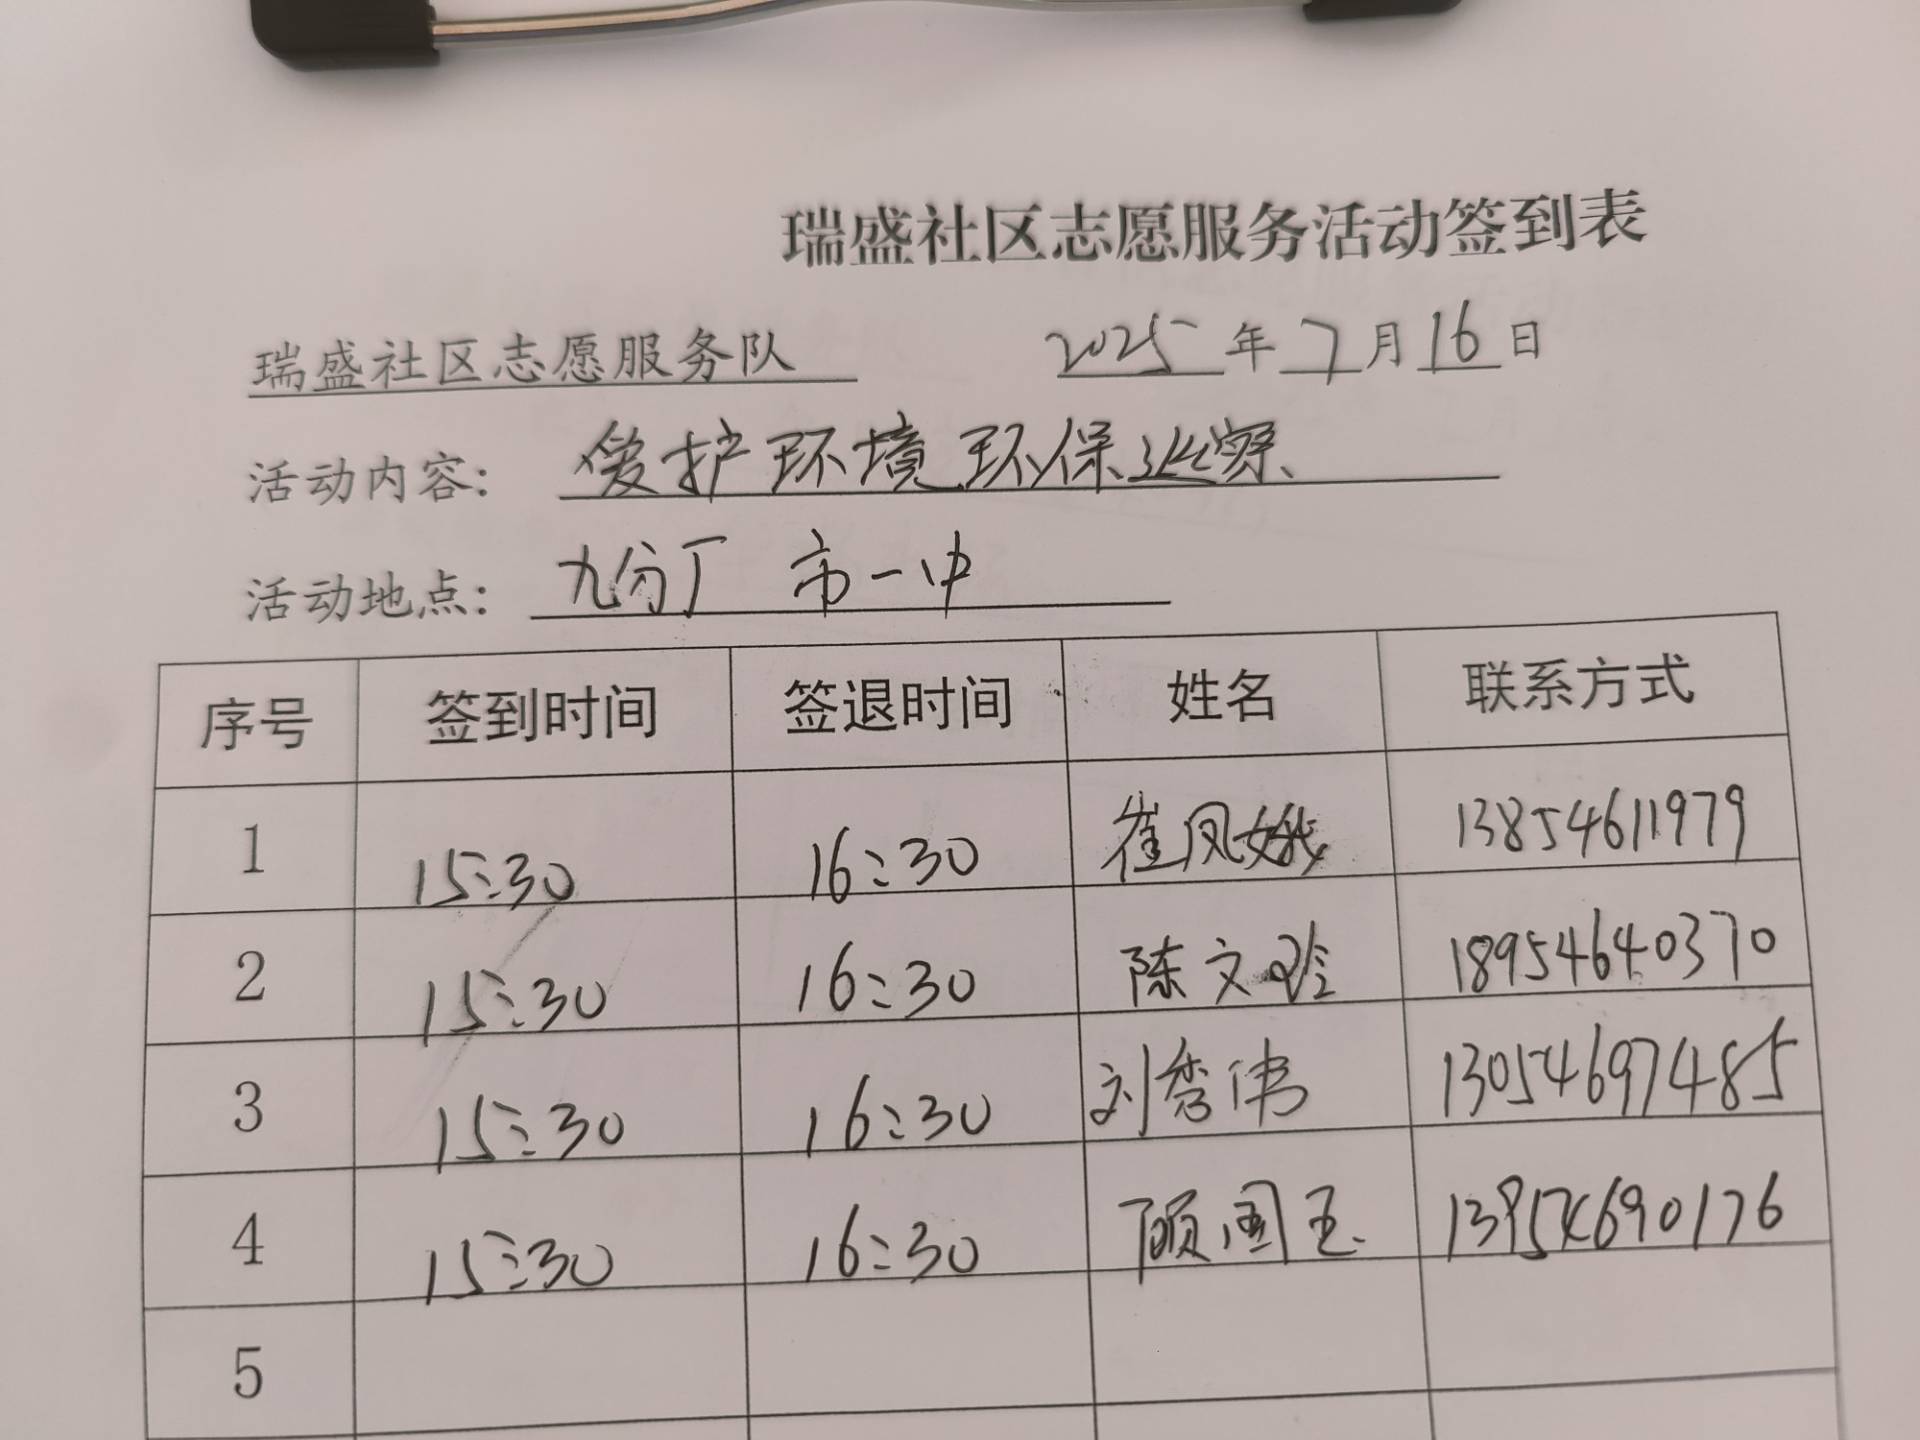 瑞盛社区志愿服务活动签到表
瑞盛社区志愿服务队 2025年7月16日
活动内容：爱护环境环保巡察
活动地点：九分厂 市一中
序号 签到时间 签退时间 姓名 联系方式
1 15:30 16:30 崔凤娥 13854611979
2 15:30 16:30 陈文玲 18954640370
3 15:30 16:30 刘秀伟 13054697485
4 15:30 16:30 顾国玉 13954690176
5